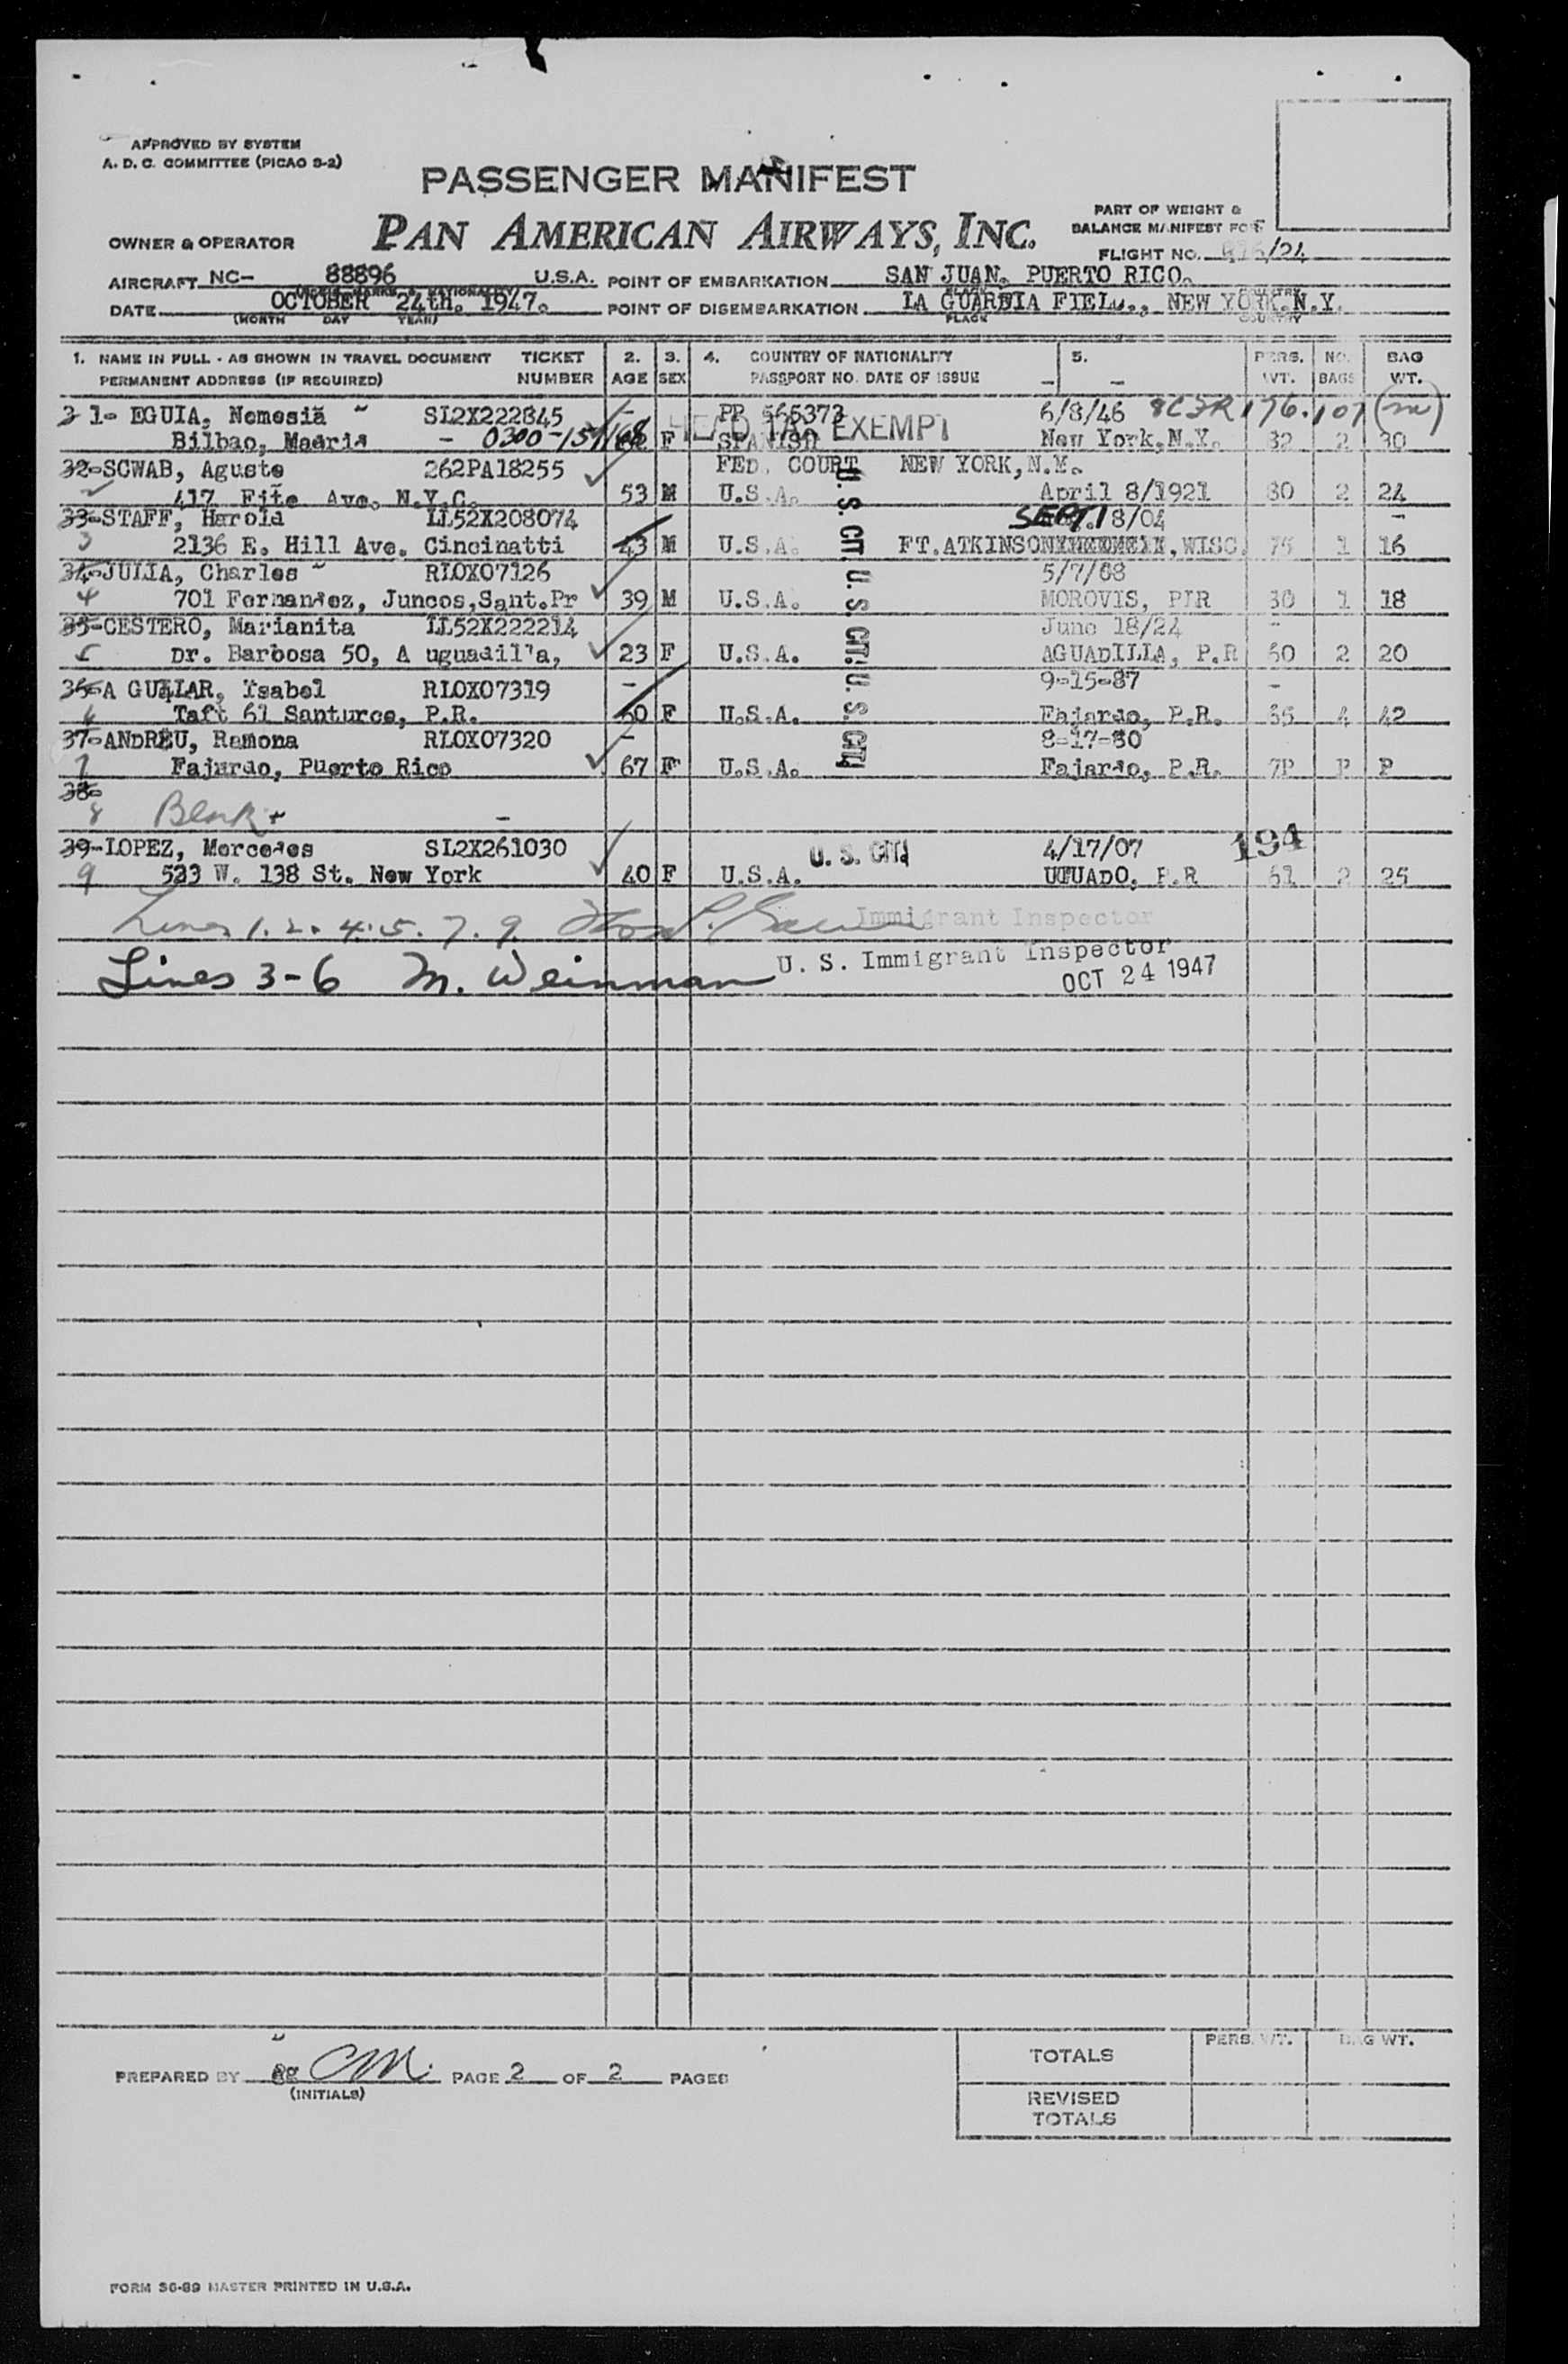 APPROVED BY SYSTEM
A. D. C. COMMITTEE (PICAO S-2)
PASSENGER MANIFEST
PAN AMERICAN AIRWAYS, INC.
OWNER & OPERATOR
PART OF WEIGHT &
BALANCE MANIFEST FOR
FLIGHT NO. /24
AIRCRAFT NC- 88896 U.S.A. POINT OF EMBARKATION SAN JUAN. PUERTO RICO.
DATE OCTOBER 24th. 1947. POINT OF DISEMBARKATION LA GUARDIA FIELD., NEW YORK.N.Y.
(MONTH DAY YEAR) PLACE COUNTRY
1. NAME IN FULL - AS SHOWN IN TRAVEL DOCUMENT TICKET 2. 3. 4. COUNTRY OF NATIONALITY 5. PERS. NO. BAG
PERMANENT ADDRESS (IF REQUIRED) NUMBER AGE SEX PASSPORT NO. DATE OF ISSUE WT. BAGS WT.
31- EGUIA, Nemesia SL2X222845 PP 565373 6/8/46 8CSR176.107 (m)
Bilbao, Madrid - 0300-151/68 F SPANISH New York,N.Y. 82 2 30
HEAD TAX EXEMPT
32-SCWAB, Aguste 262PA18255 FED. COURT NEW YORK,N.Y.
417 Fite Ave. N.Y.C. 53 M U.S.A. April 8/1921 80 2 24
33-STAFF, Harold LL52X208074 SEPT. 18/04 -
3 2136 E. Hill Ave. Cincinatti 43 M U.S.A. FT.ATKINSON, WISC. 75 1 16
34-JULIA, Charles RLOX07126 5/7/08
4 701 Fernandez, Juncos,Sant.Pr 39 M U.S.A. MOROVIS, P.R 80 1 18
35-CESTERO, Marianita LL52X222214 June 18/24
5 Dr. Barbosa 50, A uguadilla, 23 F U.S.A. AGUADILLA, P.R 60 2 20
36-A GUILAR, Isabel RLOX07319 - 9-15-87 -
6 Taft 61 Santurce, P.R. 60 F U.S.A. Fajardo, P.R. 65 4 42
37-ANDREU, Ramona RLOX07320 - 8-17-80
7 Fajardo, Puerto Rico 67 F U.S.A. Fajardo, P.R. 7P P P
U. S. CIT. U. S. CIT. U. S. CIT.
38-
8 Blank -
39-LOPEZ, Mercedes SL2X261030 U. S. CIT. 4/17/07 194
9 523 W. 138 St. New York 40 F U.S.A. UTUADO, P.R 61 2 25
Lines 1. 2. 4. 5. 7. 9. Immigrant Inspector
Lines 3-6 M. Weinman U. S. Immigrant Inspector
OCT 24 1947
PREPARED BY CM. PAGE 2 OF 2 PAGES
(INITIALS)
PERS. WT. BAG WT.
TOTALS
REVISED
TOTALS
FORM 36-89 MASTER PRINTED IN U.S.A.